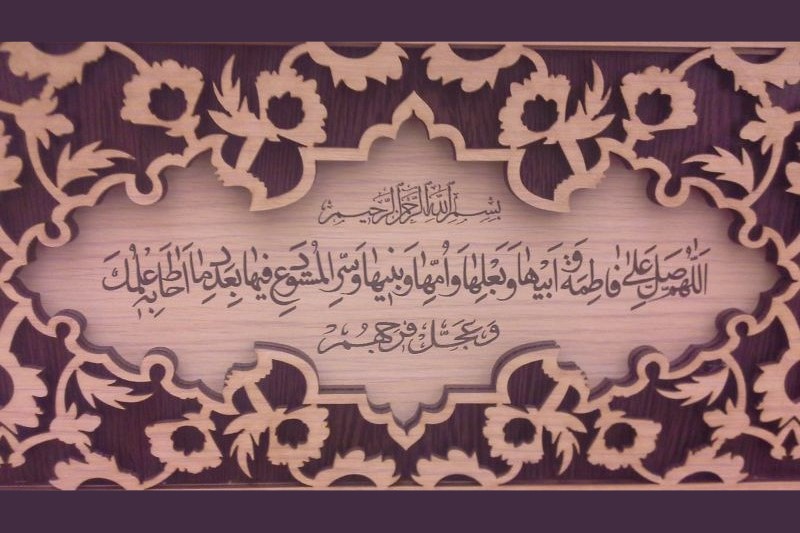 بِسْمِ اللَّهِ الرَّحْمَنِ الرَّحِيمِ
اَللّهُمَّ صَلِّ عَلی فاطِمَةَ وَ اَبیها وَ بَعْلِها وَ اُمِّها وَ بَنیها وَ سِرِّ الْمُسْتَوْدَعِ فیها بِعَدَدِ ما اَحاطَ بِهِ عِلْمُكَ
وَ عَجِّلْ فَرَجَهُمْ